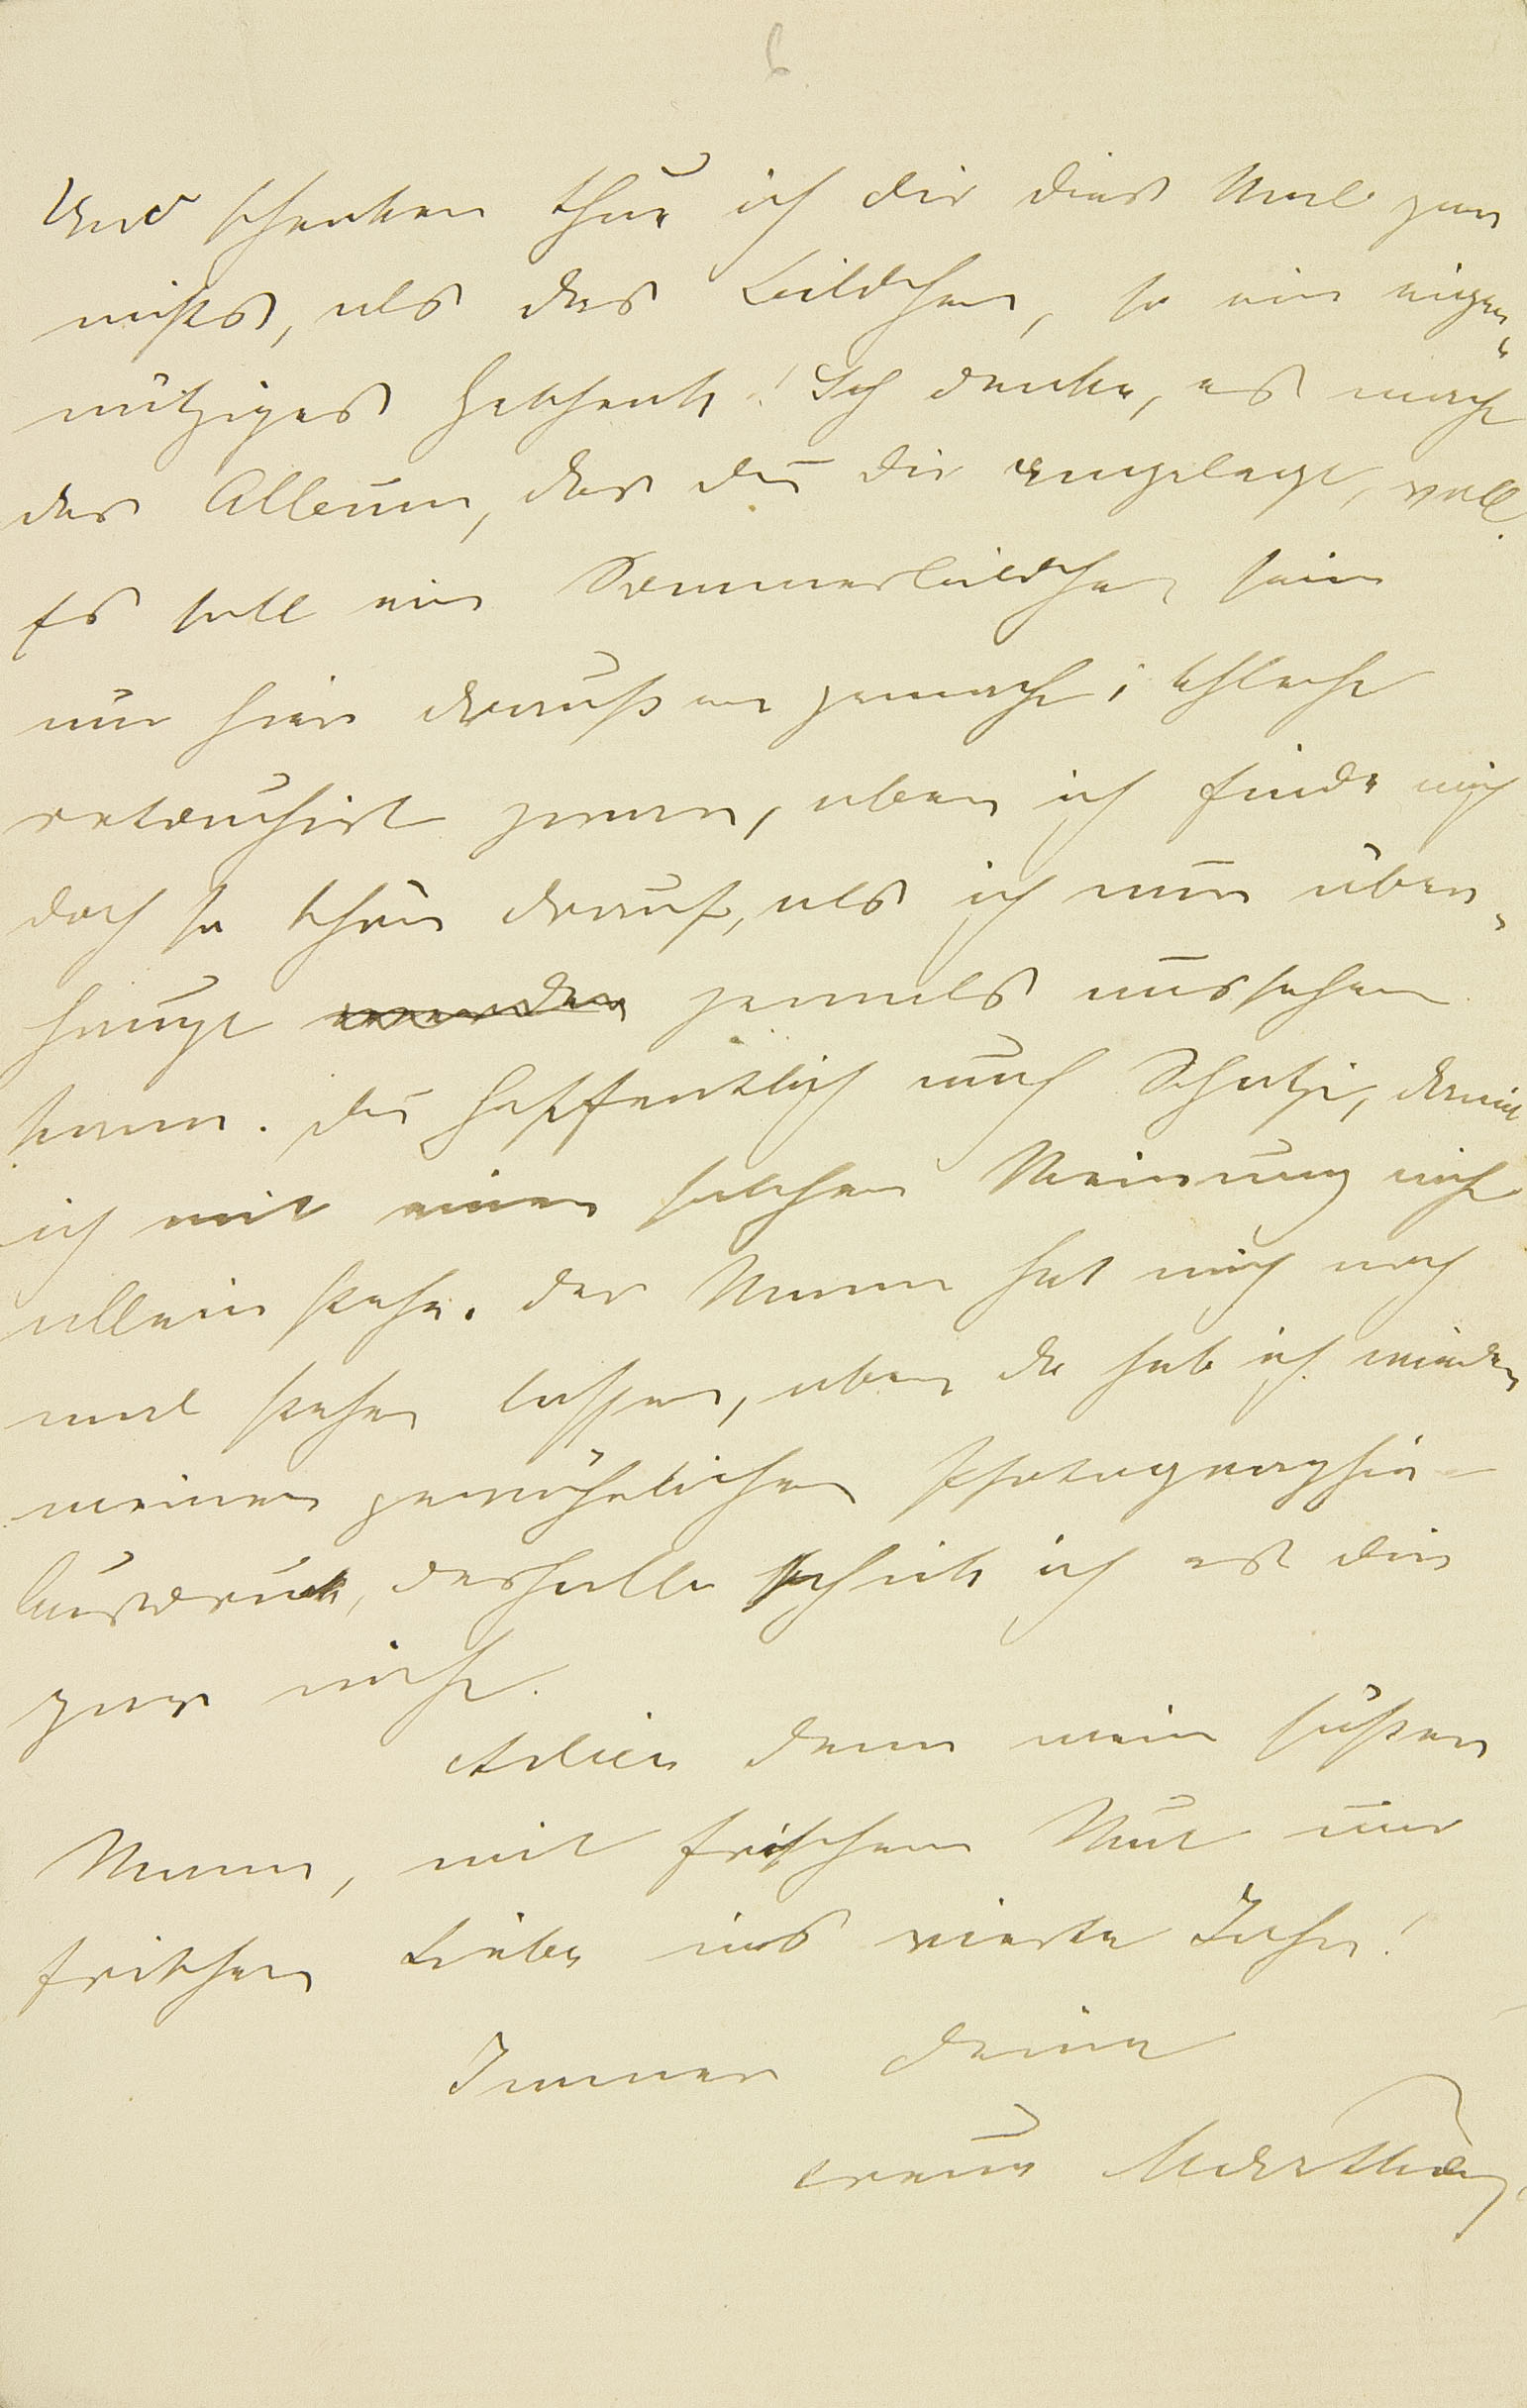 6
Und schenken thue ich dir dies Mal gar
nichts, als das Bildchen, so ein eigen-
nütziges Geschenk! Ich denke, es macht
das Album, das du dir angelegt, voll.
Es soll ein Sommerbildchen sein
nur hier draußen gemacht; schlecht
retouchirt genug, aber ich finde mich
doch so schön drauf, als ich nur über-
haupt jemals aussehen
kann. Du hoffentlich auch Schatzi, damit
ich mit einer solchen Meinung nicht
allein stehe. Der Mann hat mich noch
mal stehen lassen, aber da hab ich wieder
meinen gewöhnlichen Photographie-
ausdruck, deshalb schick ich es dir
gar nicht.
Adieu denn mein süßer
Mann, mit frischem Mut und
frischer Liebe ins vierte Jahr!
Immer deine
treue